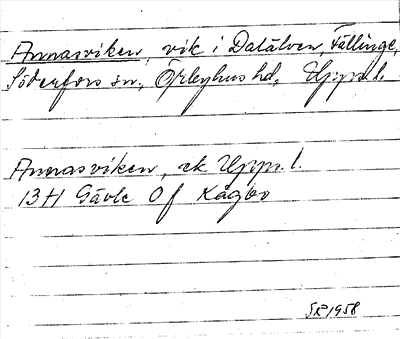 Annasviken, vik i Dalälven, Fällinge,
Söderfors sn., Örbyhus hd, Upps. l.
Annasviken, ek Upps. l.
13H Gävle 0f Kågbo
SR 1958